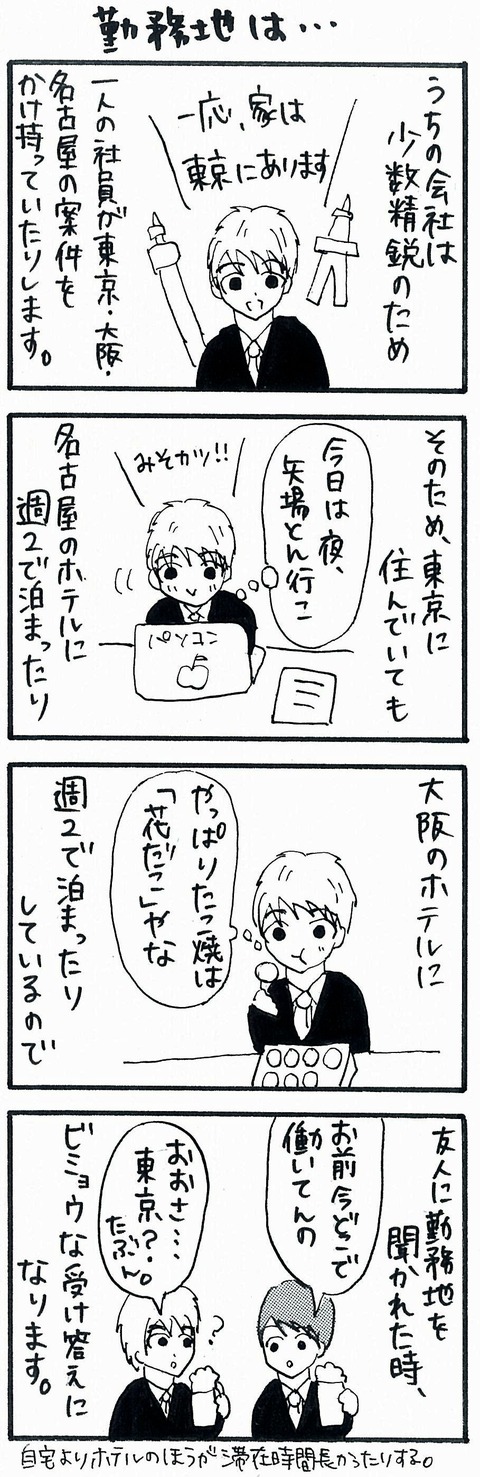 勤務地は…
うちの会社は
少数精鋭のため
一応、家は
東京にあります
一人の社員が東京・大阪・
名古屋の案件を
かけ持っていたりします。
そのため、東京に
住んでいても
今日は夜、
矢場とん行こ
みそカツ!!
パソコン
名古屋のホテルに
週2で泊まったり
大阪のホテルに
やっぱりたこ焼は
「花だこ」やな
週2で泊まったり
しているので
友人に勤務地を
聞かれた時、
お前今どこで
働いてんの
?
おおさ…
東京?
たぶん。
ビミョウな受け答えに
なります。
自宅よりホテルのほうが滞在時間長かったりする。